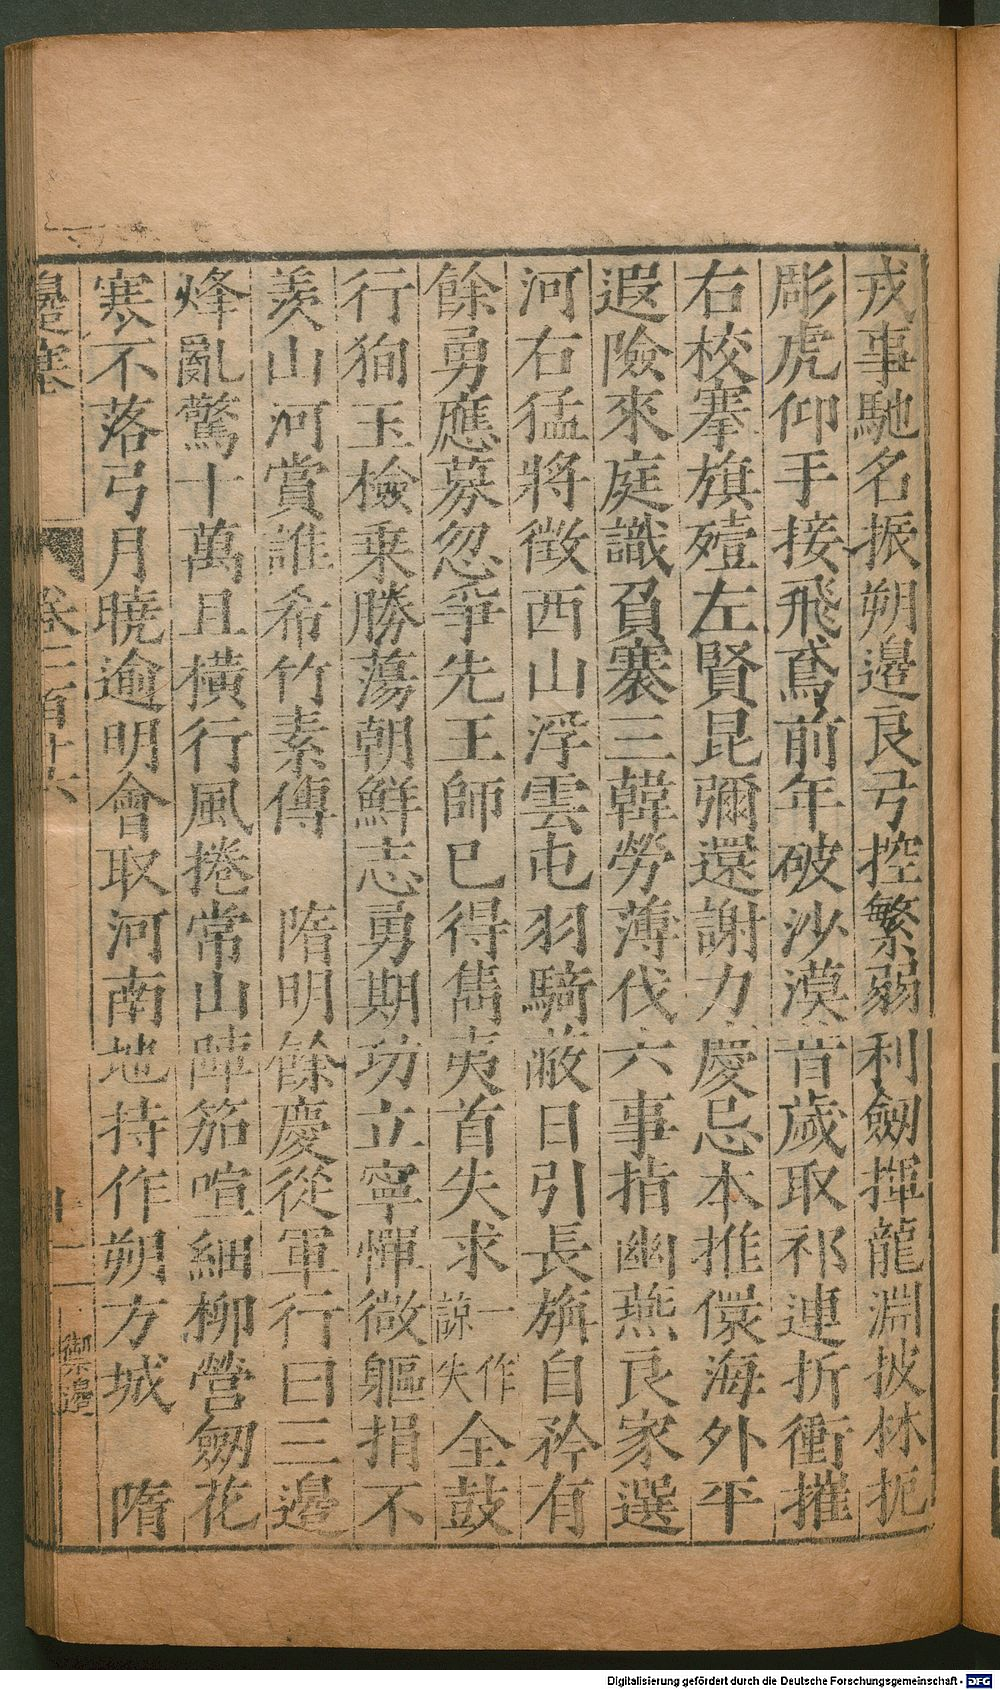 戎事馳名振朔邉良弓控繁弱利劒揮龍淵披林扼
彫虎仰手接飛鳶前年破沙漠昔歲取祁連折衝摧
右校搴旗殪左賢昆彌還謝力慶忌本推儇海外平
遐險來庭識負褰三韓勞薄伐六事指幽燕良家選
河右猛將徵西山浮雲屯羽騎蔽日引長旃自矜有
餘勇應募忽爭先王師已得雋夷首失求一作諒失全鼓
行狥玉檢乗勝蕩朝鮮志勇期功立寧憚微軀捐不
羨山河賞誰希竹素傳 隋明餘慶從軍行曰三邉
烽亂驚十萬且橫行風捲常山陣笳喧細柳營劒花
寒不落弓月曉逾明會取河南地持作朔方城 隋
邉塞 卷三百廿六 十一 禦邉
Digitalisierung gefördert durch die Deutsche Forschungsgemeinschaft - DFG